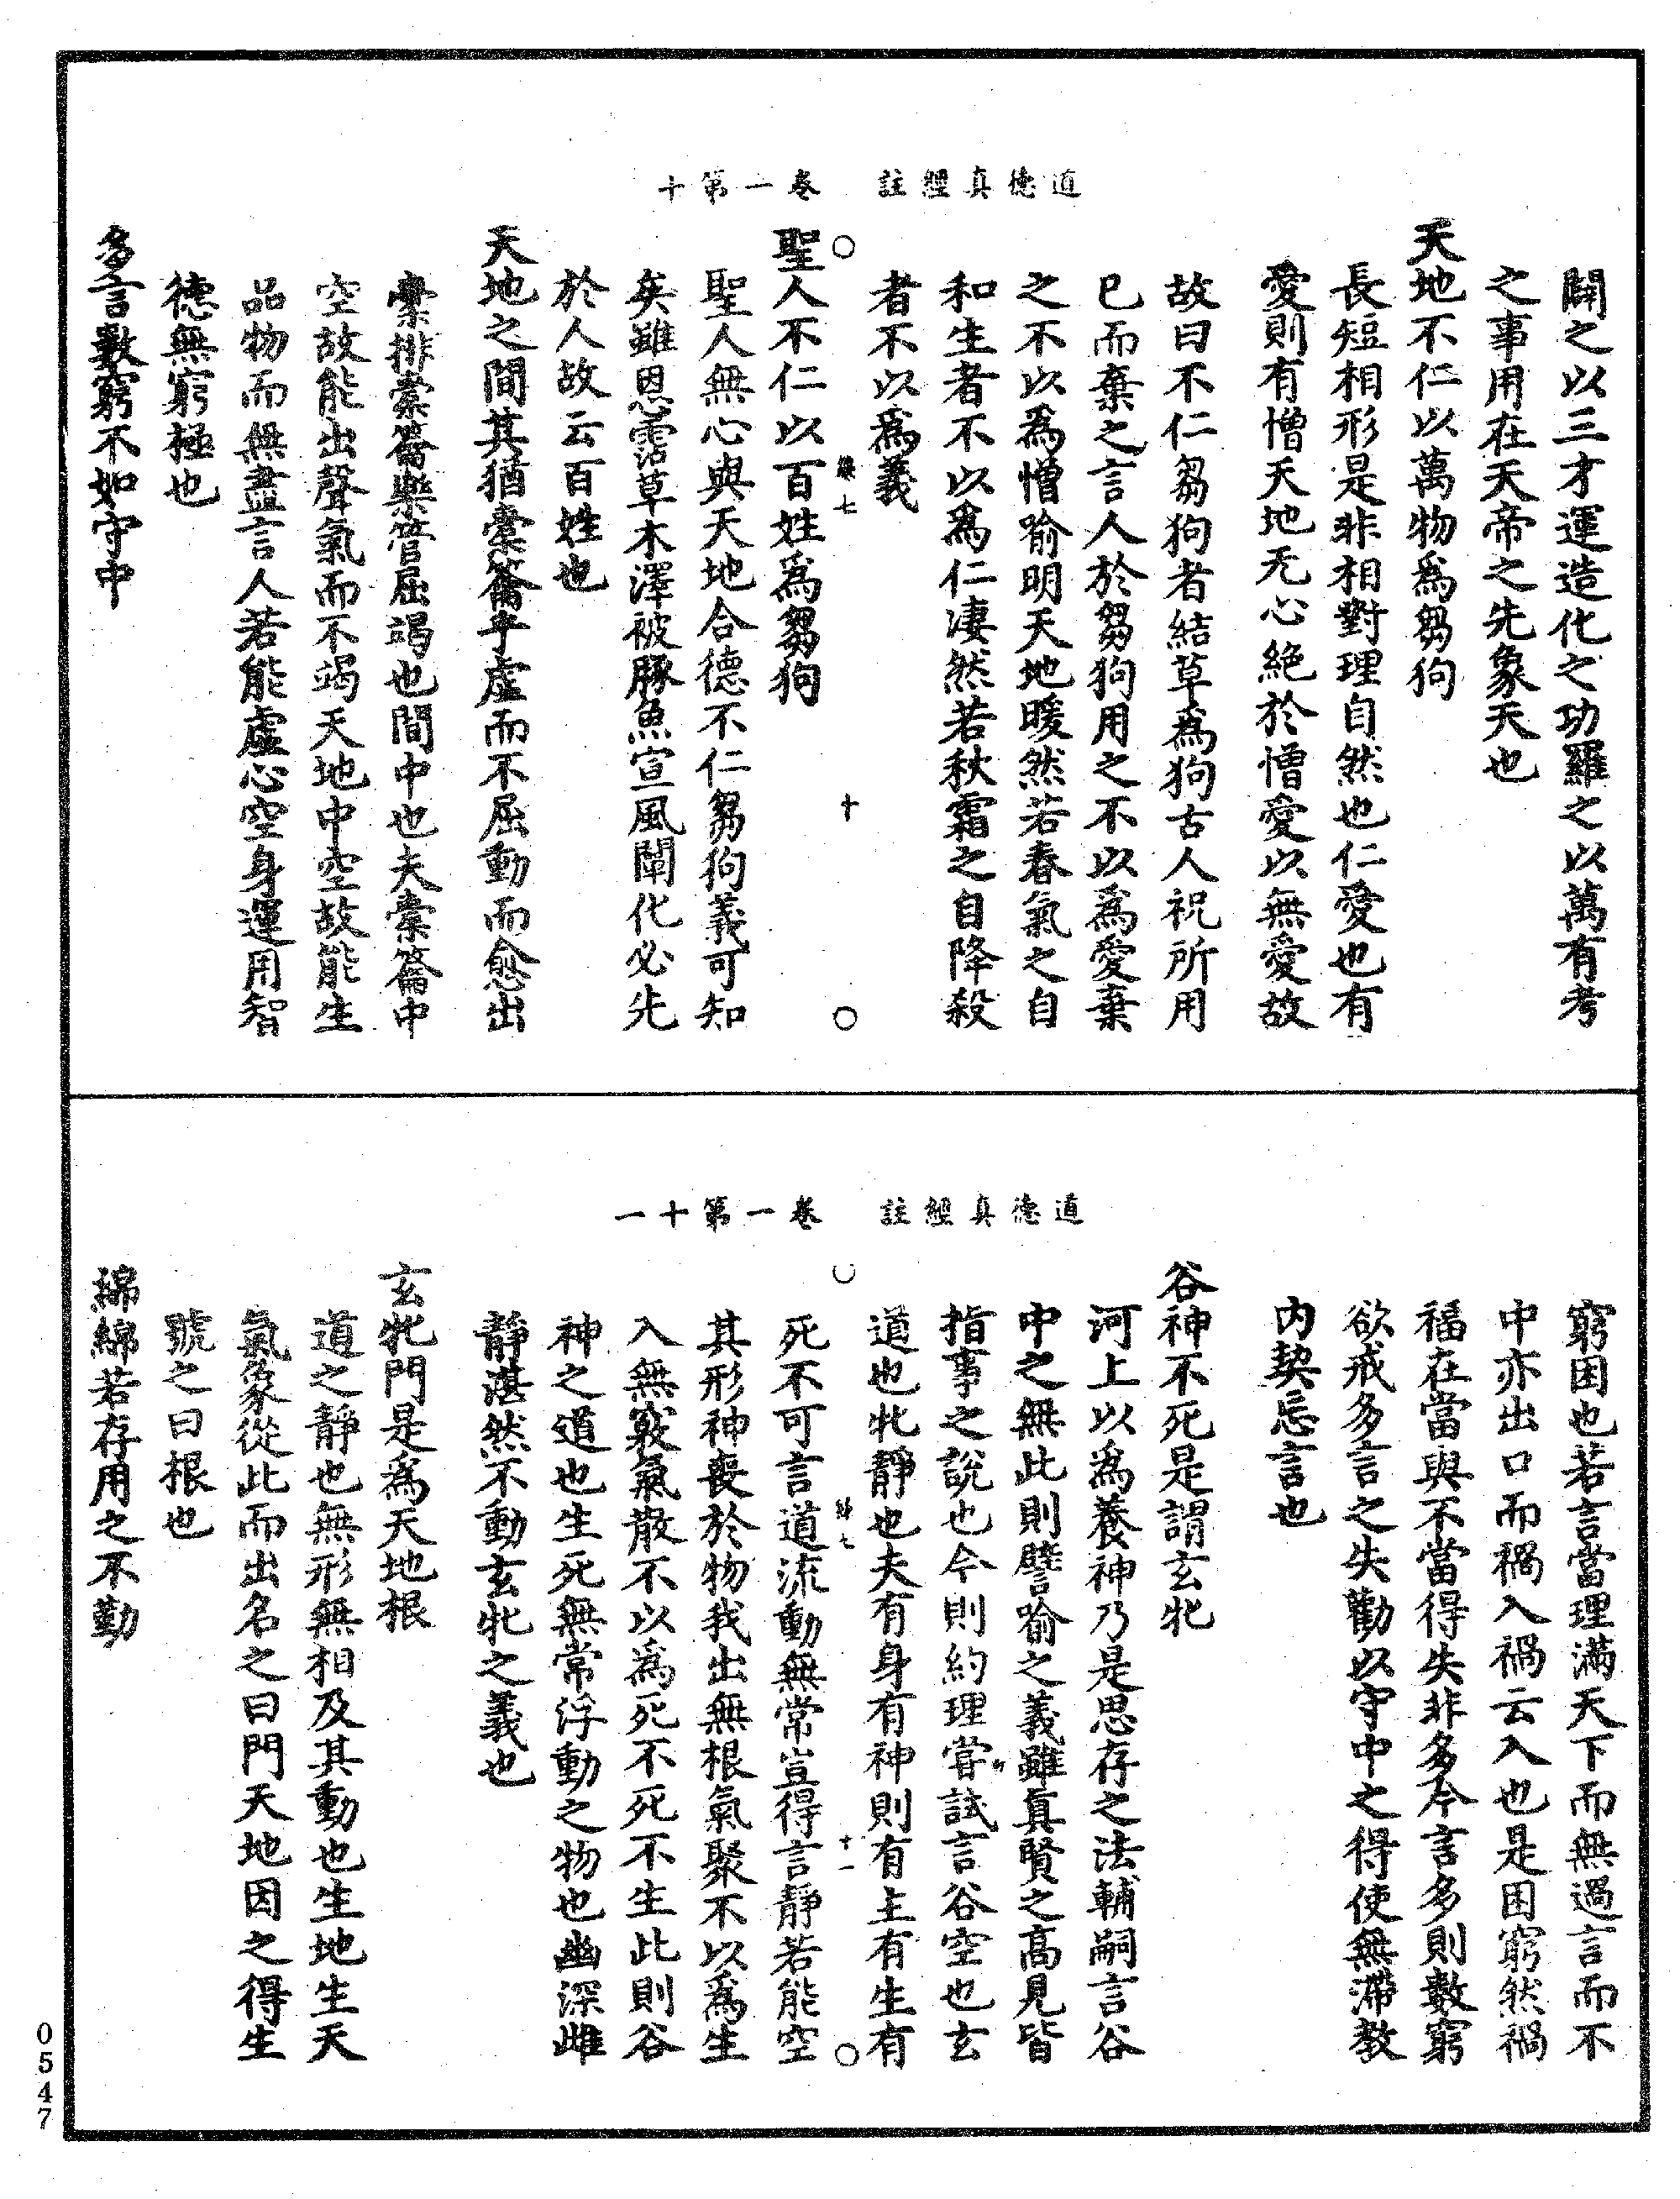 道德真經註　卷一第十
闢之以三才運造化之功羅之以萬有考
之事用在天帝之先象天也
天地不仁以萬物爲芻狗
長短相形是非相對理自然也仁愛也有
愛則有憎天地无心絕於憎愛以無愛故
故曰不仁芻狗者結草爲狗古人祝所用
已而棄之言人於芻狗用之不以爲愛棄
之不以爲憎喻明天地暖然若春氣之自
和生者不以爲仁淒然若秋霜之自降殺
者不以爲義
七
十
聖人不仁以百姓爲芻狗
聖人無心與天地合德不仁芻狗義可知
矣雖恩霑草木澤被豚魚宣風闡化必先
於人故云百姓也
天地之間其猶橐籥乎虛而不屈動而愈出
橐排橐籥樂管屈竭也間中也夫橐籥中
空故能出聲氣而不竭天地中空故能生
品物而無盡言人若能虛心空身運用智
德無窮極也
多言數窮不如守中
道德真經註　卷一第十一
窮困也若言當理滿天下而無過言而不
中亦出口而禍入禍云入也是困窮然禍
福在當與不當得失非多今言多則數窮
欲戒多言之失勸以守中之得使無滯教
內契忘言也
谷神不死是謂玄牝
河上以爲養神乃是思存之法輔嗣言谷
中之無此則譬喻之義雖真賢之高見皆
指事之說也今則約理嘗試言谷空也玄
道也牝靜也夫有身有神則有主有生有
七
十一
死不可言道流動無常豈得言靜若能空
其形神喪於物我出無根氣聚不以爲生
入無竅氣散不以爲死不死不生此則谷
神之道也生死無常浮動之物也幽深雌
靜湛然不動玄牝之義也
玄牝門是爲天地根
道之靜也無形無相及其動也生地生天
氣象從此而出名之曰門天地因之得生
號之曰根也
綿綿若存用之不勤
0547